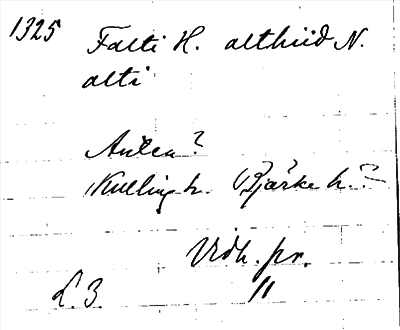 1325 Falti H. althiid N.
alti
Anten?
Kulling h. Bjärke h.?
Vidh. pr.
L. 3. 11